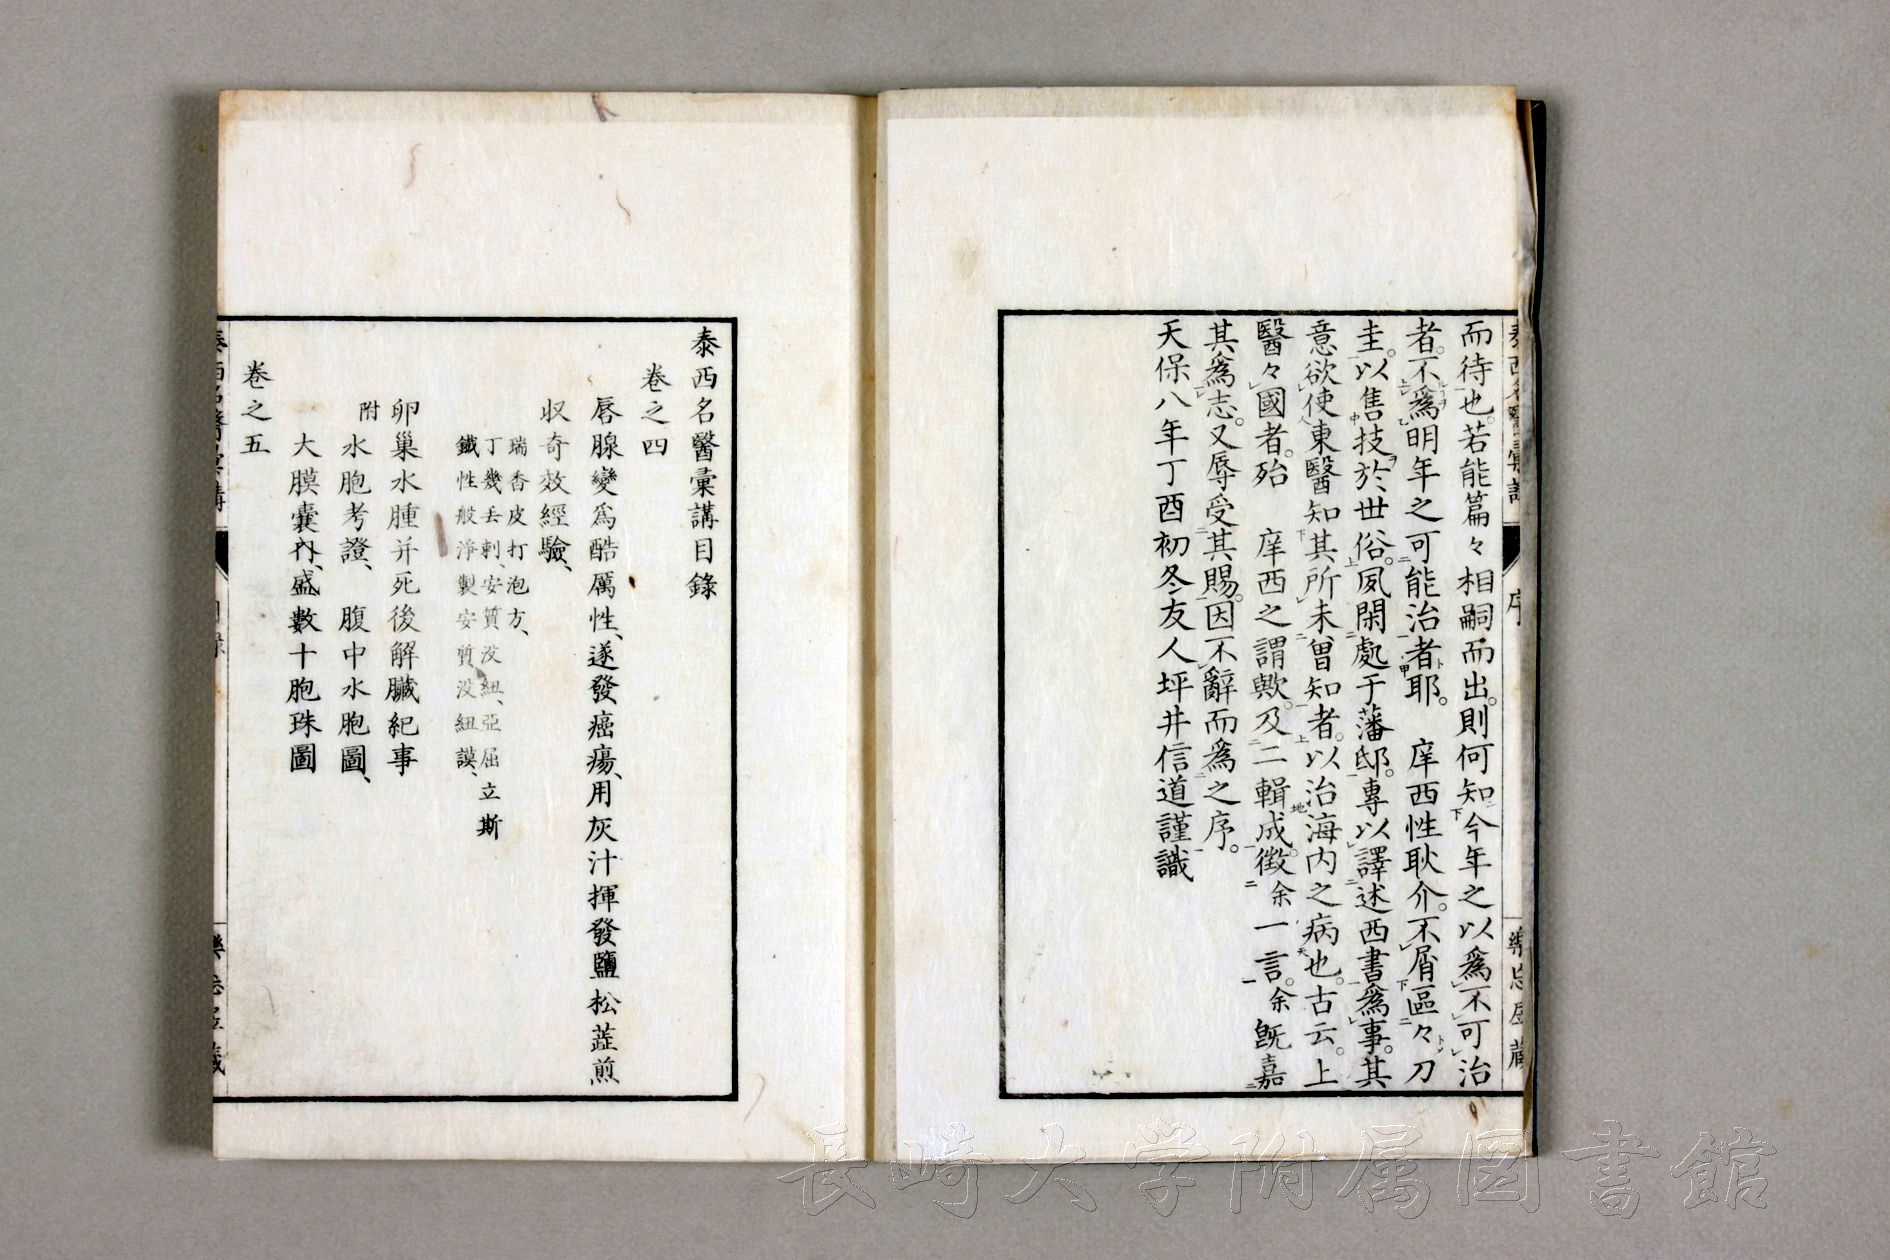 而待也。若能篇々相嗣而出。則何知今年之以爲不可治
者。不爲明年之可能治者耶。 庠西性耿介。不屑區々刀
圭。以售技於世俗。夙閑處于藩邸。專以譯述西書爲事。其
意欲使東醫知其所未曾知者。以治海内之病也。古云。上
醫々國者。殆 庠西之謂歟。及二輯成。徴余一言。余旣嘉
其爲志。又辱受其賜。因不辭而爲之序。
天保八年丁酉初冬友人坪井信道謹識
泰西名醫彙講目錄
卷之四
唇腺變爲酷厲性、遂發癌瘍、用灰汁揮發鹽松蕋煎
収奇效經驗、
瑞香皮打泡方、
丁幾去刺、安質没紐、亞屈立斯
鐵性般淨製安質没紐謨、
卵巢水腫并死後解臟紀事
附水胞考證、 腹中水胞圖、
大膜囊内、盛數十胞珠圖
卷之五
長崎大学附属図書館